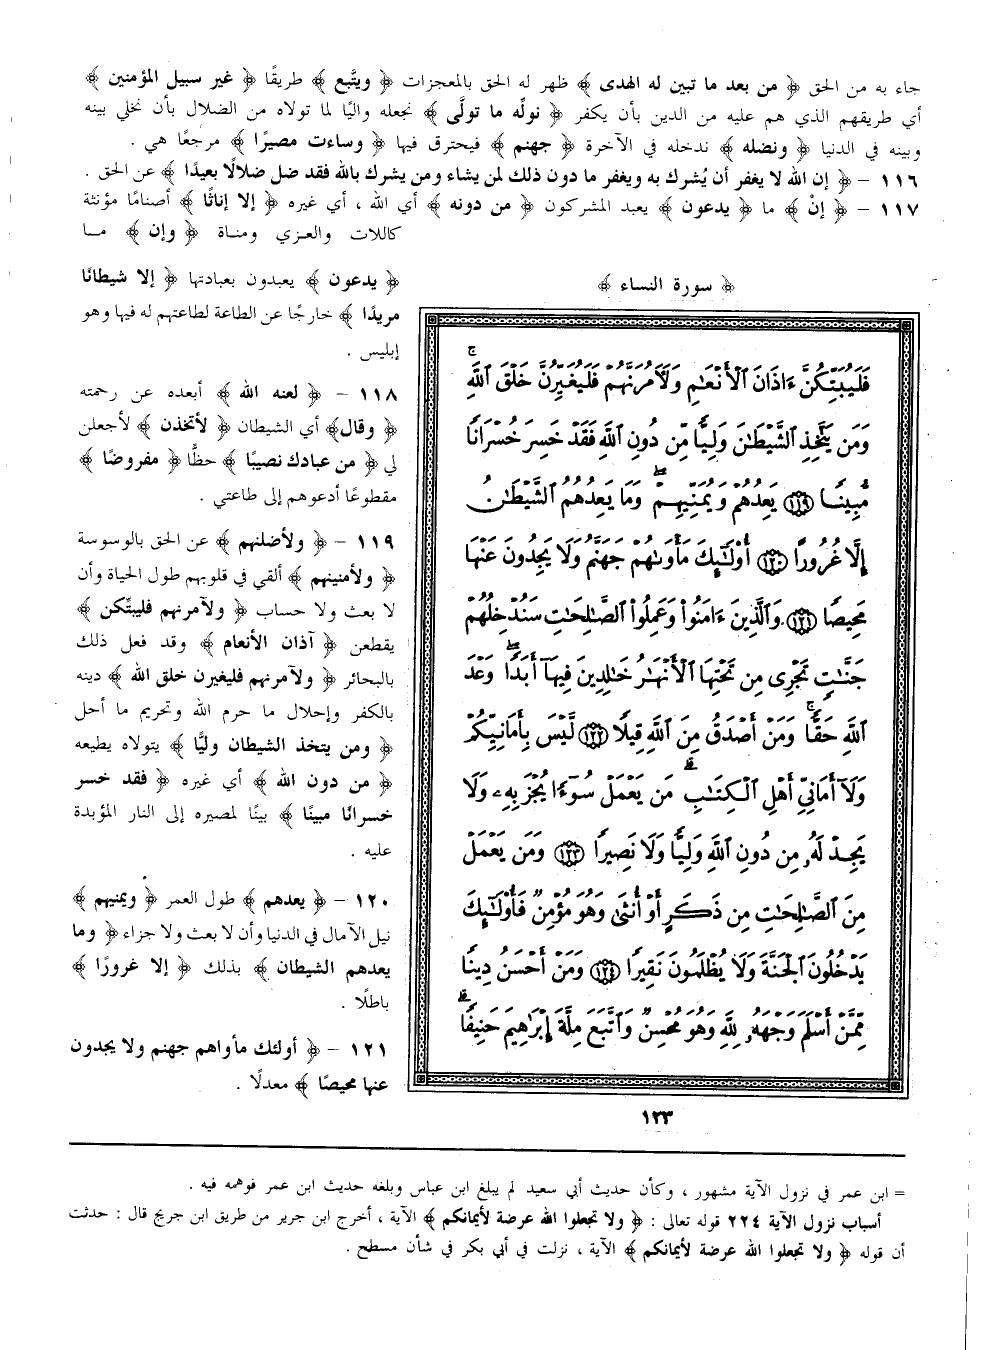 جاء به من الحق ﴿ من بعد ما تبين له الهدى ﴾ ظهر له الحق بالمعجزات ﴿ ويتَّبع ﴾ طريقًا ﴿ غير سبيل المؤمنين ﴾
أي طريقهم الذي هم عليه من الدين بأن يكفر ﴿ نولِّه ما تولَّى ﴾ نجعله واليًا لما تولاه من الضلال بأن نخلي بينه
وبينه في الدنيا ﴿ ونصله ﴾ ندخله في الآخرة ﴿ جهنم ﴾ فيحترق فيها ﴿ وساءت مصيرًا ﴾ مرجعًا هي .
١١٦ – ﴿ إن الله لا يغفر أن يُشرك به ويغفر ما دون ذلك لمن يشاء ومن يشرك بالله فقد ضل ضلالًا بعيدًا ﴾ عن الحق .
١١٧ – ﴿ إنْ ﴾ ما ﴿ يدعون ﴾ يعبد المشركون ﴿ من دونه ﴾ أي الله ، أي غيره ﴿ إلا إناثًا ﴾ أصنامًا مؤنثة
كاللات والعزي ومناة ﴿ وإن ﴾ ما
﴿ يدعون ﴾ يعبدون بعبادتها ﴿ إلا شيطانًا
مريدًا ﴾ خارجًا عن الطاعة لطاعتهم له فيها وهو
إبليس .
١١٨ – ﴿ لعنه الله ﴾ أبعده عن رحمته
﴿ وقال﴾ أي الشيطان ﴿ لأتخذن ﴾ لأجعلن
لي ﴿ من عبادك نصيبًا ﴾ حظًّا ﴿ مفروضًا ﴾
مقطوعًا أدعوهم إلى طاعتي .
١١٩ – ﴿ ولأضلنهم ﴾ عن الحق بالوسوسة
﴿ ولأمنينهم ﴾ ألقي في قلوبهم طول الحياة وأن
لا بعث ولا حساب ﴿ ولآمرنهم فليبتِّكن ﴾
يقطعن ﴿ آذان الأنعام ﴾ وقد فعل ذلك
بالبحائر ﴿ ولآمرنهم فليغيرن خلق الله ﴾ دينه
بالكفر وإحلال ما حرم الله وتحريم ما أحل
﴿ ومن يتخذ الشيطان وليًّا ﴾ يتولاه يطيعه
﴿ من دون الله ﴾ أي غيره ﴿ فقد خسر
خسرانًا مبينًا ﴾ بينًا لمصيره إلى النار المؤبدة
عليه .
١٢٠ – ﴿ يعدهم ﴾ طول العمر ﴿ ويمنيهم ﴾
نيل الآمال في الدنيا وأن لا بعث ولا جزاء ﴿ وما
يعدهم الشيطان ﴾ بذلك ﴿ إلا غرورًا ﴾
باطلًا .
١٢١ – ﴿ أولئك مأواهم جهنم ولا يجدون
عنها محيصًا ﴾ معدلًا .
﴿ سورة النساء ﴾
فَلَيُبَتِّكُنَّ ءَاذَانَ ٱلْأَنْعَٰمِ وَلَءَامُرَنَّهُمْ فَلَيُغَيِّرُنَّ خَلْقَ ٱللَّهِ ۚ
وَمَن يَتَّخِذِ ٱلشَّيْطَٰنَ وَلِيًّا مِّن دُونِ ٱللَّهِ فَقَدْ خَسِرَ خُسْرَانًا
مُّبِينًا ١١٩ يَعِدُهُمْ وَيُمَنِّيهِمْ ۖ وَمَا يَعِدُهُمُ ٱلشَّيْطَٰنُ
إِلَّا غُرُورًا ١٢٠ أُو۟لَٰٓئِكَ مَأْوَىٰهُمْ جَهَنَّمُ وَلَا يَجِدُونَ عَنْهَا
مَحِيصًا ١٢١ وَٱلَّذِينَ ءَامَنُوا۟ وَعَمِلُوا۟ ٱلصَّٰلِحَٰتِ سَنُدْخِلُهُمْ
جَنَّٰتٍ تَجْرِى مِن تَحْتِهَا ٱلْأَنْهَٰرُ خَٰلِدِينَ فِيهَآ أَبَدًا ۖ وَعْدَ
ٱللَّهِ حَقًّا ۚ وَمَنْ أَصْدَقُ مِنَ ٱللَّهِ قِيلًا ١٢٢ لَّيْسَ بِأَمَانِيِّكُمْ
وَلَآ أَمَانِىِّ أَهْلِ ٱلْكِتَٰبِ ۗ مَن يَعْمَلْ سُوٓءًا يُجْزَ بِهِۦ وَلَا
يَجِدْ لَهُۥ مِن دُونِ ٱللَّهِ وَلِيًّا وَلَا نَصِيرًا ١٢٣ وَمَن يَعْمَلْ
مِنَ ٱلصَّٰلِحَٰتِ مِن ذَكَرٍ أَوْ أُنثَىٰ وَهُوَ مُؤْمِنٌ فَأُو۟لَٰٓئِكَ
يَدْخُلُونَ ٱلْجَنَّةَ وَلَا يُظْلَمُونَ نَقِيرًا ١٢٤ وَمَنْ أَحْسَنُ دِينًا
مِّمَّنْ أَسْلَمَ وَجْهَهُۥ لِلَّهِ وَهُوَ مُحْسِنٌ وَٱتَّبَعَ مِلَّةَ إِبْرَٰهِيمَ حَنِيفًا ۗ
١٢٣
= ابن عمر في نزول الآية مشهور ، وكأن حديث أبي سعيد لم يبلغ ابن عباس وبلغه حديث ابن عمر فوهمه فيه .
أسباب نزول الآية ٢٢٤ قوله تعالى : ﴿ ولا تجعلوا الله عرضة لأيمانكم ﴾ الآية ، أخرج ابن جرير من طريق ابن جريج قال : حدثت
أن قوله ﴿ ولا تجعلوا الله عرضة لأيمانكم ﴾ الآية ، نزلت في أبي بكر في شأن مسطح .